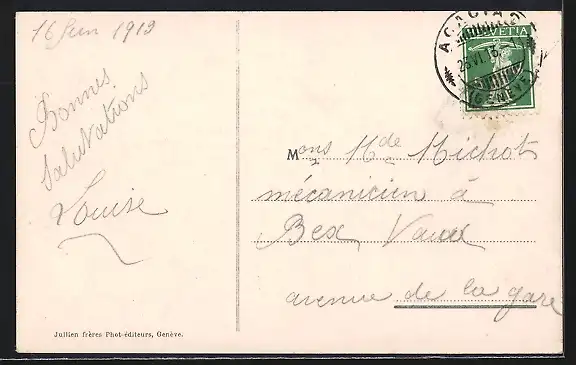 16 Juin 1913
Bonnes
Salutations
Louise
HELVETIA
ACACIAS
26.VI.13.
(GENÈVE)
Mons Mde Michot
mécanicien à
Bex Vaud
avenue de la gare
Jullien frères Phot-éditeurs, Genève.